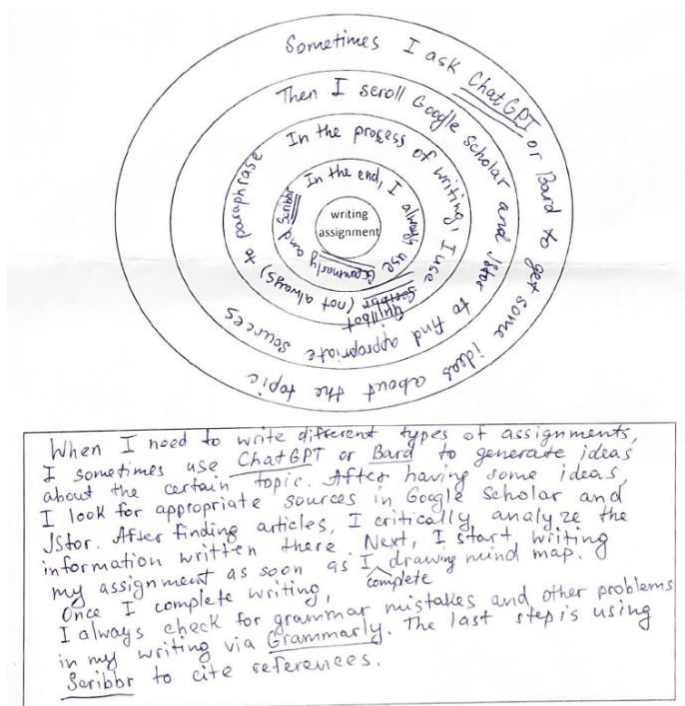 Sometimes I ask ChatGPT or Bard to get some ideas about the topic
Then I scroll Google Scholar and Jstor to find appropriate sources
In the progess of writing, I use Quillbot Scribbr (not always) to paraphrase
In the end, I always use Grammarly and Scribbr
writing
assignment
When I need to write different types of assignments,
I sometimes use ChatGPT or Bard to generate ideas
about the certain topic. After having some ideas,
I look for appropriate sources in Google Scholar and
Jstor. After finding articles, I critically analyze the
information written there. Next, I start writing
my assignment as soon as I complete drawing mind map.
Once I complete writing,
I always check for grammar mistakes and other problems
in my writing via Grammarly. The last step is using
Scribbr to cite references.